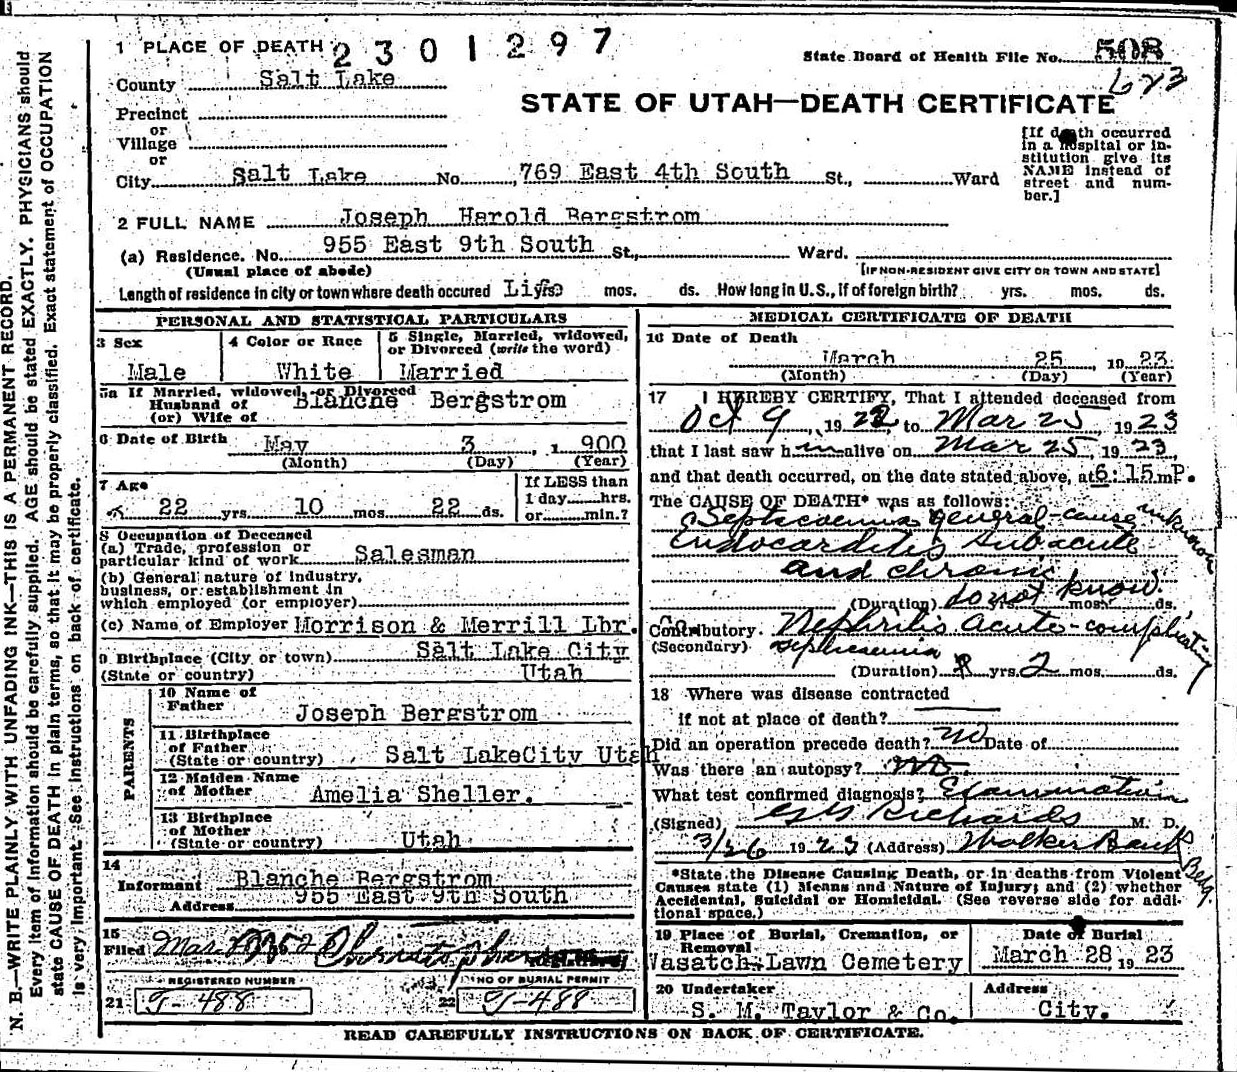 1 PLACE OF DEATH 2301297
State Board of Health File No. 508
623
County Salt Lake
STATE OF UTAH—DEATH CERTIFICATE
Precinct
or
Village
or
City Salt Lake No. 769 East 4th South St., Ward
[If death occurred
in a hospital or in-
stitution give its
NAME instead of
street and num-
ber.]
2 FULL NAME Joseph Harold Bergstrom
(a) Residence. No. 955 East 9th South St., Ward.
(Usual place of abode) [IF NON-RESIDENT GIVE CITY OR TOWN AND STATE]
Length of residence in city or town where death occured Life yrs. mos. ds. How long in U.S., if of foreign birth? yrs. mos. ds.
PERSONAL AND STATISTICAL PARTICULARS
3 Sex
Male
4 Color or Race
White
5 Single, Married, widowed,
or Divorced (write the word)
Married
5a If Married, widowed, or Divorced
Husband of
(or) Wife of Blanche Bergstrom
6 Date of Birth May 3, 1900
(Month) (Day) (Year)
7 Age
22 yrs. 10 mos. 22 ds.
If LESS than
1 day hrs.
or min.?
8 Occupation of Deceased
(a) Trade, profession or
particular kind of work Salesman
(b) General nature of industry,
business, or establishment in
which employed (or employer)
(c) Name of Employer Morrison & Merrill Lbr. Co.
9 Birthplace (City or town) Salt Lake City
(State or country) Utah
PARENTS
10 Name of
Father Joseph Bergstrom
11 Birthplace
of Father
(State or country) Salt LakeCity Utah
12 Maiden Name
of Mother Amelia Sheller.
13 Birthplace
of Mother
(State or country) Utah
14
Informant Blanche Bergstrom
Address 955 East 9th South
15
Filed Mar
REGISTERED NUMBER
21 T-488
NO OF BURIAL PERMIT
22 T-488
MEDICAL CERTIFICATE OF DEATH
16 Date of Death
March 25, 1923
(Month) (Day) (Year)
17 I HEREBY CERTIFY, That I attended deceased from
Oct 9, 1922 to Mar 25, 1923
that I last saw him alive on Mar 25, 1923,
and that death occurred, on the date stated above, at 6:15 m P.
The CAUSE OF DEATH* was as follows:
Septicaemia general-cause unknown
Endocarditis subacute
and chronic
(Duration) do not know. mos. ds.
Contributory. Nephritis acute-complicating
(Secondary) septicaemia
(Duration) yrs. 2 mos. ds.
18 Where was disease contracted
if not at place of death?
Did an operation precede death? no Date of
Was there an autopsy? no.
What test confirmed diagnosis? Examination
(Signed) Richards M. D.
3/26 1923 (Address) Walker Bank Bldg.
*State the Disease Causing Death, or in deaths from Violent
Causes state (1) Means and Nature of Injury; and (2) whether
Accidental, Suicidal or Homicidal. (See reverse side for addi-
tional space.)
19 Place of Burial, Cremation, or
Removal
Wasatch Lawn Cemetery
Date of Burial
March 28, 1923
20 Undertaker
S. M. Taylor & Co.
Address
City.
READ CAREFULLY INSTRUCTIONS ON BACK OF CERTIFICATE.
N. B.—WRITE PLAINLY WITH UNFADING INK—THIS IS A PERMANENT RECORD.
Every item of information should be carefully supplied. AGE should be stated EXACTLY. PHYSICIANS should
state CAUSE OF DEATH in plain terms, so that it may be properly classified. Exact statement of OCCUPATION
is very important. See instructions on back of certificate.